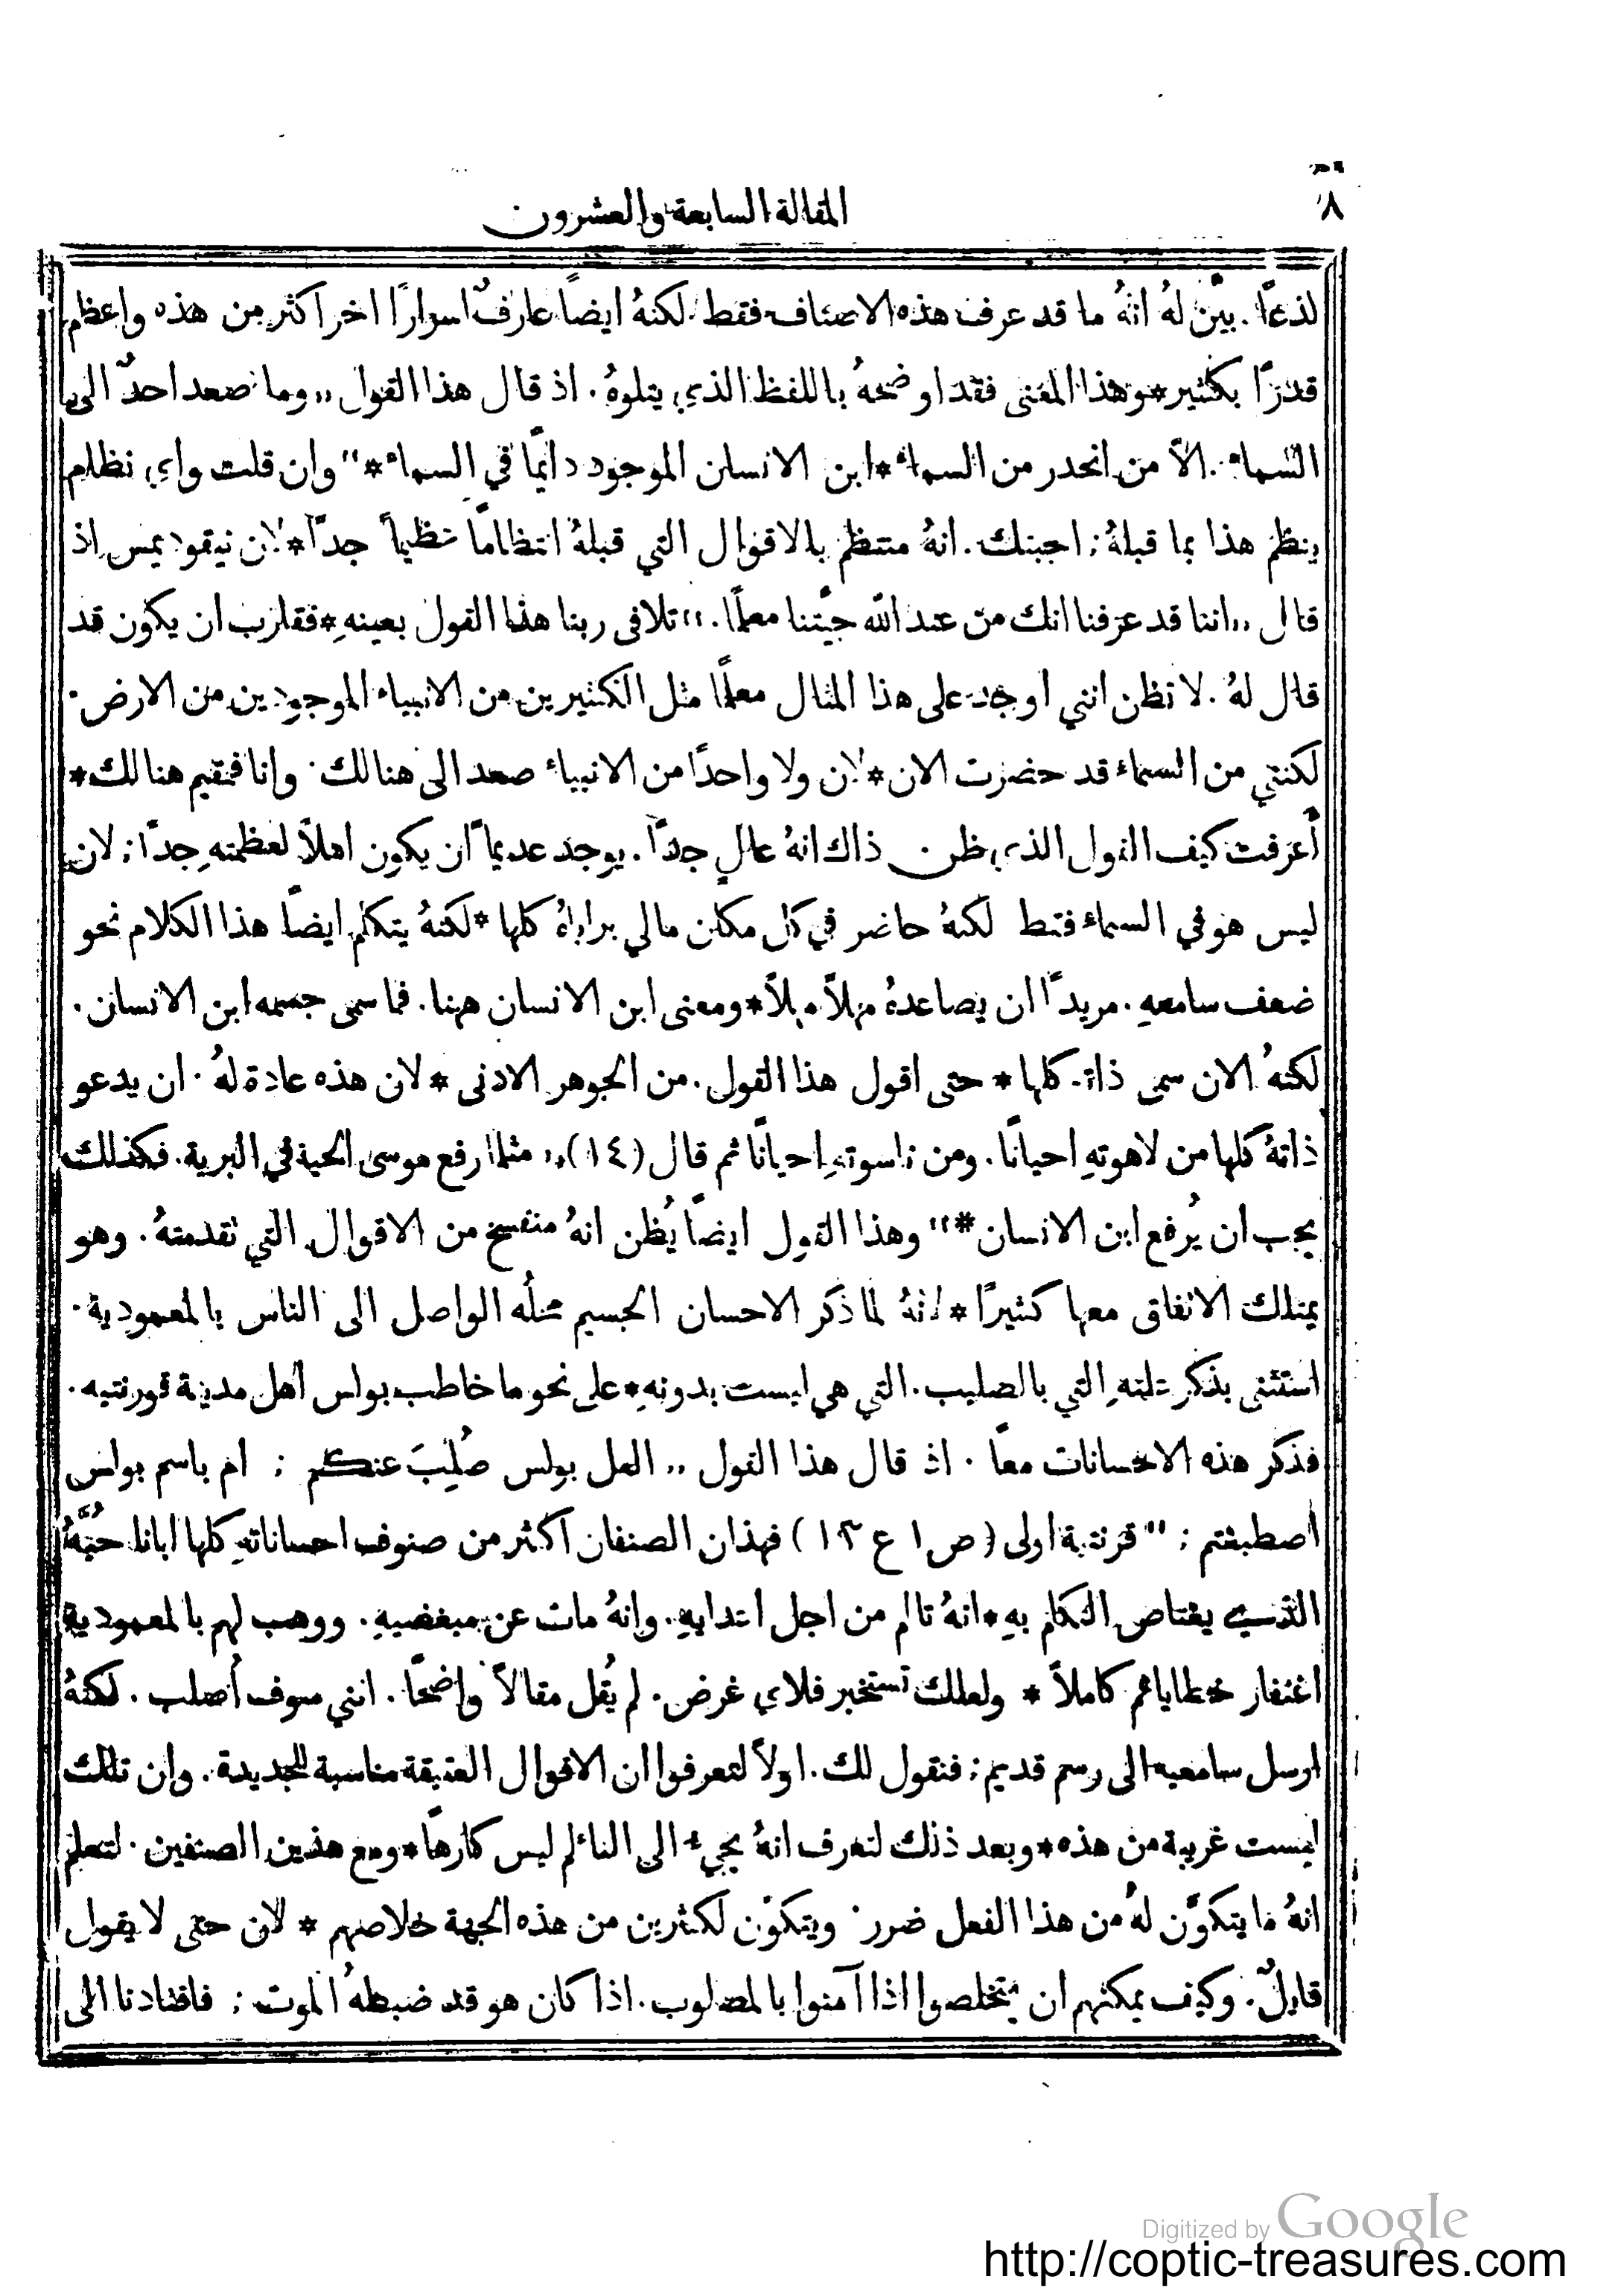 ٨
المقالة السابعة والعشرون
لذعًا. بيَّن لهُ انهُ ما قد عرف هذه الاصناف فقط. لكنهُ ايضًا عارفٌ اسرارًا اخر اكثر من هذه واعظم
قدرًا بكثير* وهذا المعنى فقد اوضحهُ باللفظ الذي يتلوهُ. اذ قال هذا القول ,,وما صعد احدٌ الى
السماء. الاَّ من انحدر من السماء* ابن الانسان الموجود دايمًا في السماء*" وان قلت واي نظام
ينظم هذا بما قبلهُ; اجبنك. انهُ منتظم بالاقوال التي قبلهُ انتظامًا عظيمًا جدًا* لان نيقوديمس اذ
قال ,,اننا قد عرفنا انك من عند الله جيتنا معلمًا." تلافى ربنا هذا القول بعينهِ* فقارب ان يكون قد
قال لهُ. لا تظن انني اوجد على هذا المثال معلمًا مثل الكثيرين من الانبياء الموجودين من الارض.
لكنني من السماء قد حضرت الان* لان ولا واحدًا من الانبياء صعد الى هنالك. وانا فمقيم هنالك*
أعرفت كيف القول الذي ظن ذاك انهُ عالٍ جدًا. يوجد عديمًا ان يكون اهلاً لعظمتهِ جدًا; لان
ليس هو في السماء فقط لكنهُ حاضر في كل مكان مالي براياهُ كلها* لكنهُ يتكلم ايضًا هذا الكلام نحو
ضعف سامعهِ. مريدًا ان يصاعدهُ مهلاً مهلاً* ومعنى ابن الانسان ههنا. فما سمى جسمه ابن الانسان.
لكنهُ الان سمى ذاتهُ كلها* حتى اقول هذا القول. من الجوهر الادنى* لان هذه عادة لهُ. ان يدعو
ذاتهُ كلها من لاهوتهِ احيانًا. ومن ناسوتهِ احيانًا ثم قال (١٤) ,,مثلما رفع موسى الحية في البرية. فكذلك
يجب ان يُرفع ابن الانسان*" وهذا القول ايضًا يُظن انهُ منفسخ من الاقوال التي تقدمتهُ. وهو
يمتلك الاتفاق معها كثيرًا* لانهُ لما ذكر الاحسان الجسيم محلُه الواصل الى الناس بالمعمودية.
استثنى بذكر علتهِ التي بالصليب. التي هي ليست بدونهِ* على نحو ما خاطب بولس اهل مدينة قورنتيه.
فذكر هذه الاحسانات معًا. اذ قال هذا القول ,,العل بولس صُلِبَ عنكم ; ام باسم بولس
اصطبغتم ; " قرنتية اولى (ص ١ ع ١٣) فهذان الصنفان اكثر من صنوف احساناتهِ كلها ابانا حبَّهُ
الذي يعتاص التكلم بهِ* انهُ تالم من اجل اعدايهِ. وانهُ مات عن مبغضيهِ. ووهب لهم بالمعمودية
اغتفار خطاياهم كاملاً* ولعلك تستخبر فلاي غرض. لم يُقل مقالاً واضحًا. انني سوف أُصلب. لكنهُ
ارسل سامعيه الى رسم قديم; فنقول لك. اولاً لتعرفوا ان الاقوال العتيقة مناسبة للجديدة. وان تلك
ليست غريبة من هذه* وبعد ذلك لتعرف انهُ يجيء الى التالم ليس كارهًا* ومع هذين الصنفين. لتعلم
انهُ ما يتكوَّن لهُ من هذا الفعل ضرر. ويتكوَّن لكثرين من هذه الجهة خلاصهم* لان حتى لا يقول
قايلٌ. وكيف يمكنهم ان يتخلصوا اذا آمنوا بالمصلوب. اذا كان هو قد ضبطهُ الموت; فاقتادنا الى
Digitized by Google
http://coptic-treasures.com